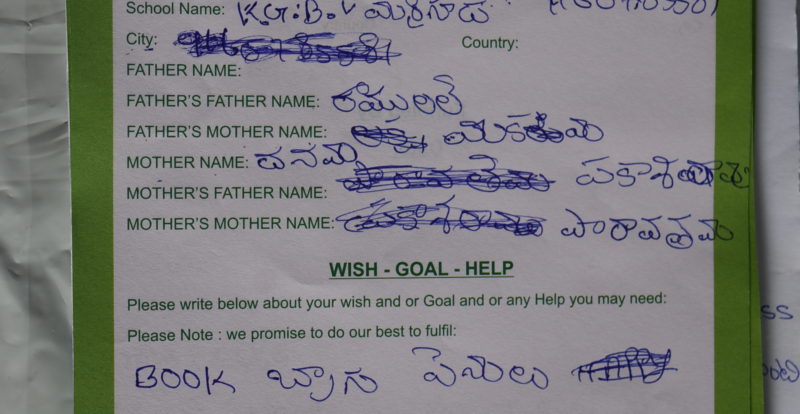 School Name: K.G.B.V మర్రిగూడ
City:
Country:
FATHER NAME:
FATHER'S FATHER NAME: రాములలే
FATHER'S MOTHER NAME:
MOTHER NAME: ధనమ్మ
MOTHER'S FATHER NAME:
MOTHER'S MOTHER NAME: పారావత్రమ
WISH - GOAL - HELP
Please write below about your wish and or Goal and or any Help you may need:
Please Note : we promise to do our best to fulfil:
BOOK బ్యాగు పెనులు